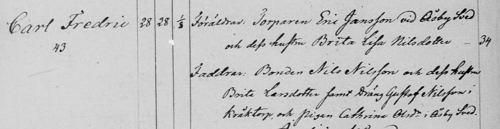 Carl Fredric 28 28 1/2 Föräldrar: Torparen Eric Jansson vid Åsby Sved
43 och dess hustru Brita Lisa Nilsdotter — 34
Faddrar: Bonden Nils Nilsson och dess hustru
Brita Larsdotter samt Dräng Gustof Nilsson i
Kråktorp och Pigan Cathrina Olsdr i Åsby Sved.